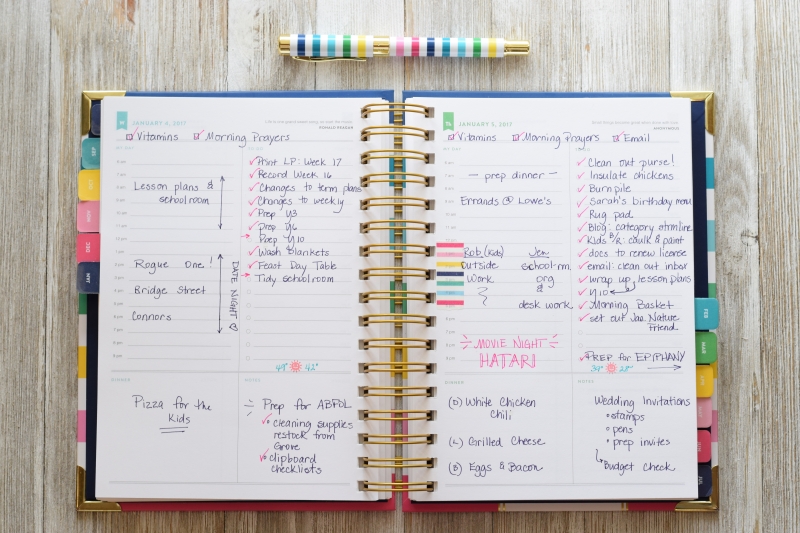 JANUARY 4, 2017
RONALD REAGAN
Vitamins Morning Prayers
Lesson plans &
schoolroom
Rogue One!
Bridge Street
Connors
DATE NIGHT
Print LP: Week 17
Record Week 16
Changes to term plans
Changes to weekly
Prep Y3
Prep Y6
Prep Y10
Wash Blankets
Feast Day Table
Tidy schoolroom
49° 42°
DINNER
Pizza for the
Kids
NOTES
Prep for ABFOL
cleaning supplies
restock from
Grove
clipboard
checklists
JANUARY 5, 2017
ANONYMOUS
Vitamins Morning Prayers Email
prep dinner
Errands @ Lowe's
Rob (Kids) Jen
Outside school-rm
Work org
&
desk work
MOVIE NIGHT
HATARI
Clean out purse!
Insulate chickens
Burn pile
Sarah's birthday menu
Rug pad
Blog: category
Kids B/R: caulk & paint
docs to renew license
email: clean out inbox
wrap up lesson plans
Y10
Morning Basket
set out Jan. Nature
Friend
PREP for EPIPHANY
34° 28°
DINNER
(D) White Chicken
Chili
(L) Grilled Cheese
(B) Eggs & Bacon
NOTES
Wedding Invitations
stamps
pens
prep invites
Budget Check
FEB
MAR